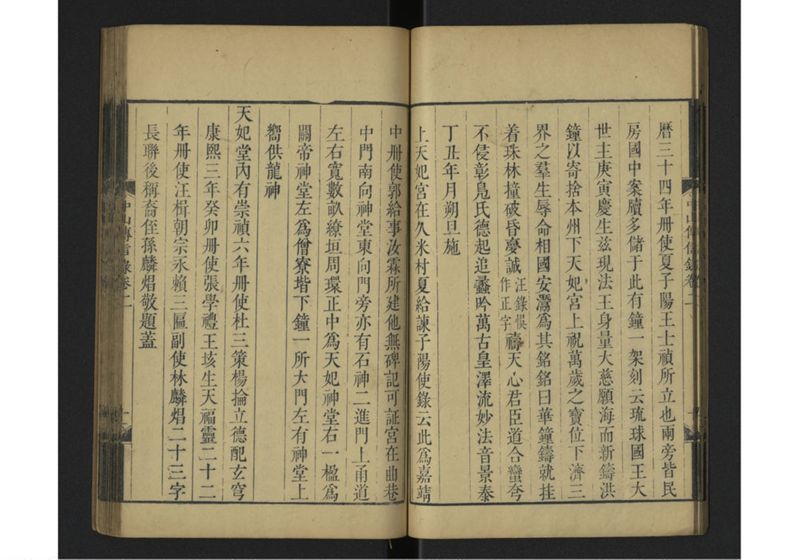 曆三十四年冊使夏子陽王士禎所立也兩旁皆民
房國中案牘多儲于此有鐘一架刻云琉球國王大
世主庚寅慶生茲現法王身量大慈願海而新鑄洪
鐘以寄捨本州下天妃宮上祝萬歲之寶位下濟三
界之羣生辱命相國安潛為其銘銘曰華鐘鑄就挂
着珠林撞破昏慶誠汪錄悞作正字禱天心君臣道合蠻夸
不侵彰鳧氏德起追蠡吟萬古皇澤流妙法音景泰
丁丑年月朔旦施
上天妃宮在久米村夏給諫子陽使錄云此為嘉靖
中山傳信錄卷二
中冊使郭給事汝霖所建他無碑記可証宮在曲巷
中門南向神堂東向門旁亦有石神二進門上甬道
左右寬數畝繚垣周環正中為天妃神堂右一楹為
關帝神堂左為僧寮堦下鐘一所大門左有神堂上
嚮供龍神
天妃堂內有崇禎六年冊使杜三策楊掄立德配玄穹
康熙三年癸卯冊使張學禮王垓生天福靈二十二
年冊使汪楫朝宗永賴三匾副使林麟焻二十三字
長聯後稱裔侄孫麟焻敬題蓋
中山傳信錄卷二